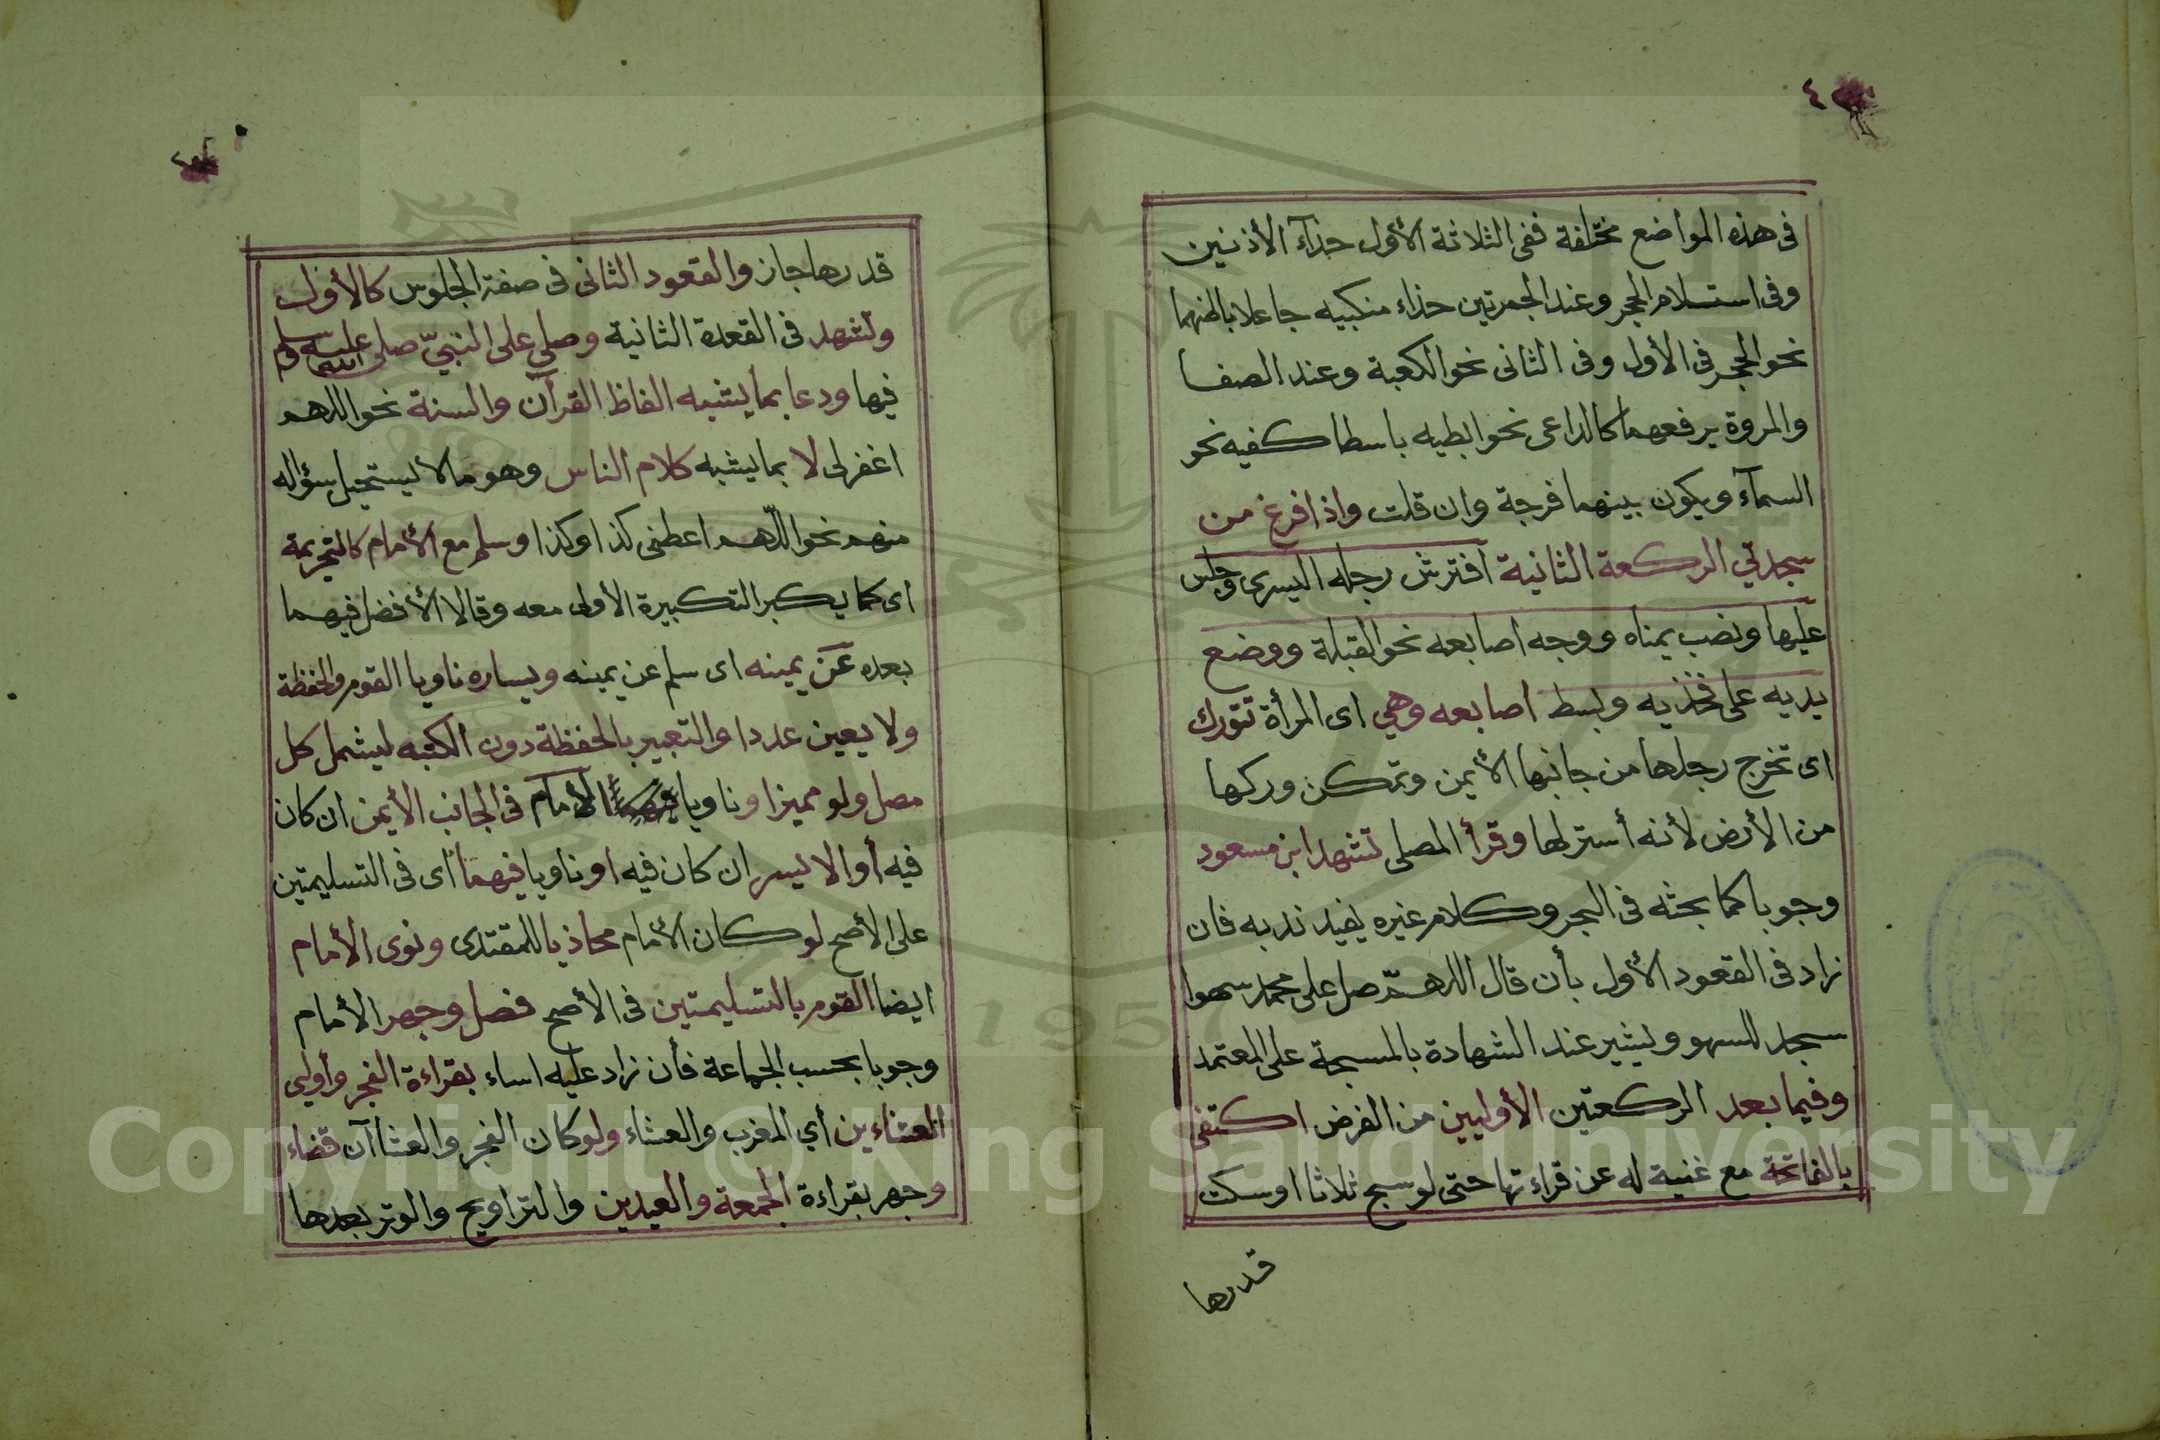 ٤
في هذه المواضع مختلفة ففى الثلاثة الأول حذآء الأذنين
وفى استلام الحجر وعند الجمرتين حذاء منكبيه جاعلا باطنهما
نحو الحجر فى الأول وفى الثانى نحو الكعبة وعند الصفا
والمروة يرفعهما كالداعى نحو ابطيه باسطا كفيه نحو
السمآء ويكون بينهما فرجة وان قلت واذا فرغ من
سجدتي الركعة الثانية افترش رجله اليسرى وجلس
عليها ونصب يمناه ووجه اصابعه نحو القبلة ووضع
يديه على فخذيه وبسط اصابعه وهي اى المرأة تتورك
اى تخرج رجلها من جانبها الأيمن وتمكن وركها
من الأرض لأنه أستر لها وقرأ المصلى تشهد ابن مسعود
وجوبا كما بحثه فى البحر وكلام غيره يفيد ندبه فان
زاد فى القعود الأول بأن قال اللهمّ صل على محمد سهوا
سجد للسهو ويشير عند الشهادة بالمسبحة على المعتمد
وفيما بعد الركعتين الأوليين من الفرض اكتفى
بالفاتحة مع غنية له عن قراءتها حتى لو سبح ثلاثا او سكت
قدرها
قدرها جاز والقعود الثانى فى صفة الجلوس كالأول
وتشهد فى القعدة الثانية وصلى على النبيّ صلى الله عليه وسلم
فيها ودعا بما يشبه الفاظ القرآن والسنة نحو اللهم
اغفر لى لا بما يشبه كلام الناس وهو مالا يستحيل سؤاله
منهم نحو اللّهم اعطنى كذا وكذا وسلم مع الأمام كالتحريمة
اى كما يكبر التكبيرة الأولى معه وقالا الأفضل فيهما
بعده عن يمينه اى سلم عن يمينه ويساره ناويا القوم والحفظة
ولا يعين عددا والتعبير بالحفظة دون الكتبه ليشمل كل
مصل ولو مميزا وناويا الأمام فى الجانب الأيمن ان كان
فيه أو الايسر ان كان فيه او ناويا فيهما اى فى التسليمتين
على الأصح لو كان الأمام محاذيا للمقتدى ونوى الأمام
ايضا القوم بالتسليمتين فى الأصح فصل وجهر الأمام
وجوبا بحسب الجماعة فأن زاد عليه اساء بقراءة الفجر وأولي
العشاءين أي المغرب والعشاء ولو كان الفجر والعشاآن قضاء
وجهر بقراءة الجمعة والعيدين والتراويح والوتر بعدها
1957
Copyright © King Saud University